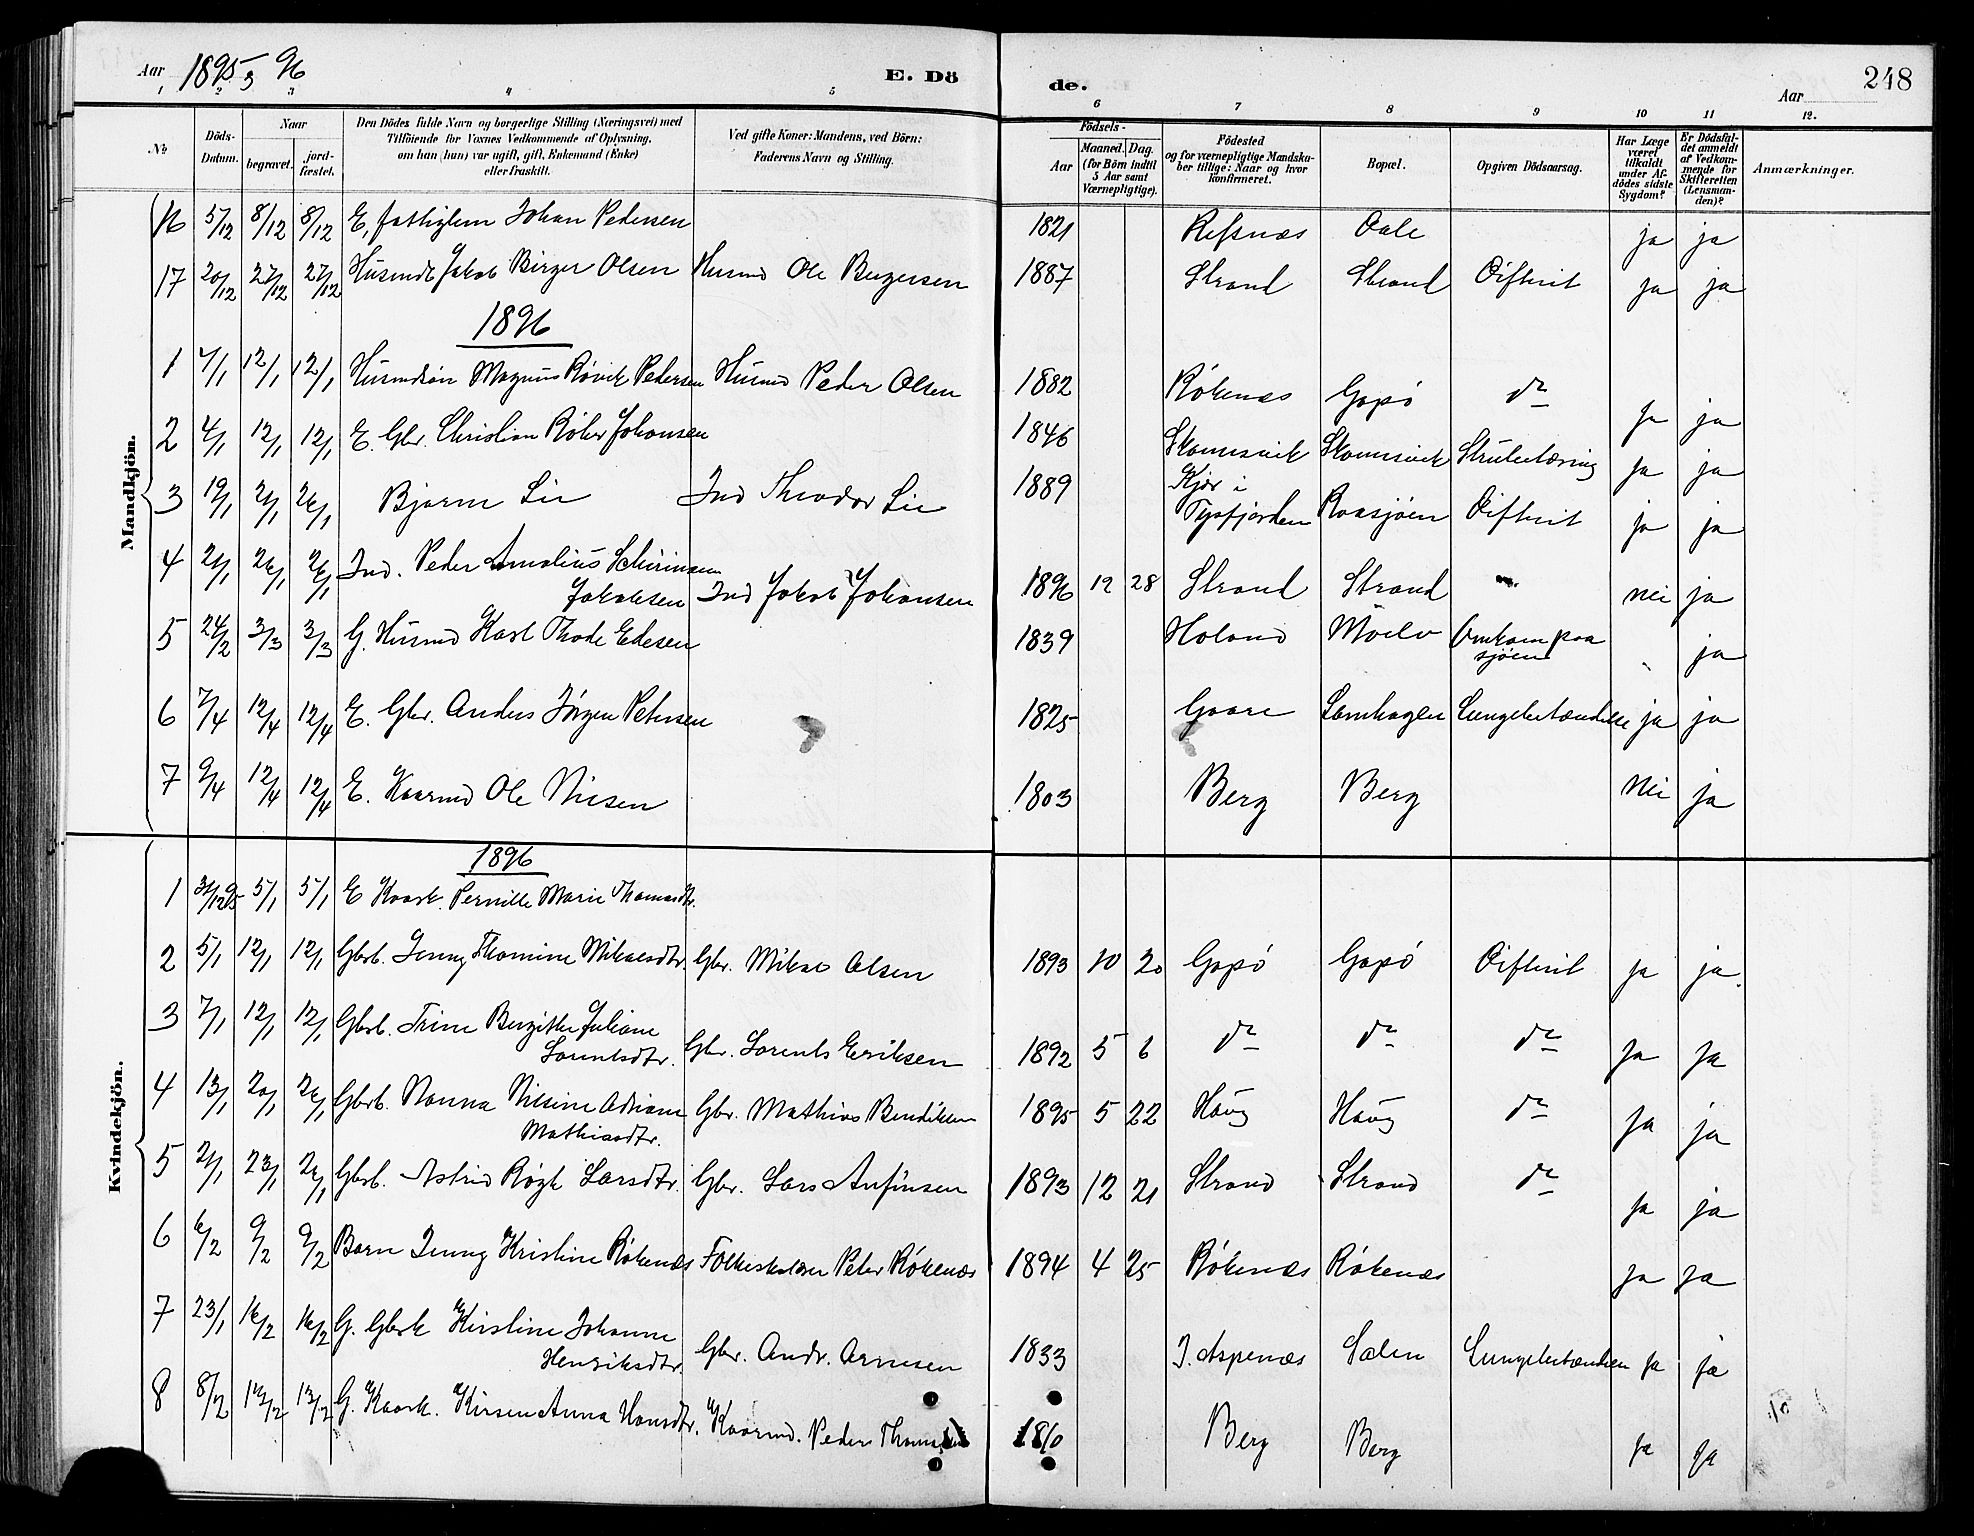 Aar 1895 96 E. Dö de. Aar 248
1 2 3 4 5 6 7 8 9 10 11 12.
No Döds-Datum. Naar begravet. jordfæstet. Den Dödes fulde Navn og borgerlige Stilling (Næringsvei) med Tilföiende for Voxnes Vedkommende af Oplysning, om han (hun) var ugift, gift, Enkemand (Enke) eller fraskilt. Ved gifte Koner: Mandens, ved Börn: Faderens Navn og Stilling. Födsels- Aar Maaned. Dag. (for Börn indtil 5 Aar samt Værnepligtige). Födested og for værnepligtige Mandskaber tillige: Naar og hvor konfirmeret. Bopæl. Opgiven Dödsaarsag. Har Læge været tilkaldt under Afdödes sidste Sygdom? Er Dödsfaldet anmeldt af Vedkommende for Skifteretten (Lensmanden)? Anmærkninger.
Mandkjön.
16 5/12 8/12 8/12 E, fattiglem Johan Pedersen 1821 Refsnæs Aale ja ja
17 20/12 27/12 27/12 Husmdb Jakob Birger Olsen Husmd Ole Bergersen 1887 Strand Strand Difterit ja ja
1896
1 7/1 12/1 12/1 Husmdsön Magnus Rövik Pedersen Husmd Peder Olsen 1882 Rökenæs Gopö do ja ja
2 4/1 12/1 12/1 E. Gbr. Christian Röker Johansen 1846 Skomsvik Skomsvik Strubetæring ja ja
3 19/1 2/1 26/1 Bjarne Lie Ind Theodor Lie 1889 Kjör i
Tysfjorden Roasjöen Difterit ja ja
4 21/1 26/1 26/1 Ind. Peder Amalius
Jakobsen Ind Jakob Johansen 1896 12 28 Strand Strand nei ja
5 24/2 3/3 3/3 G. Husmd Karl Thode Edesen 1839 Holand Möelv Omkom paa
sjöen ja
6 7/4 12/4 12/4 E. Gbr. Anders Jörgen Petersen 1825 Gaare Lamhagen Lungebetændelse ja ja
7 9/4 12/4 12/4 E. Kaarmd Ole Nilsen 1803 Berg Berg Nei ja
Kvindekjön.
1896
1 31/12 95 5/1 5/1 E Kaark. Pernille Marie Thomasdtr.
2 5/1 12/1 12/1 Gbrb. Jenny Thomine Mikalsdtr. Gbr. Mikal Olsen 1893 10 20 Gopö Gopö Difterit ja ja
3 7/1 12/1 12/1 Gbrb. Trine Bergithe Juliane
Lorentsdtr. Gbr. Lorents Eriksen 1892 5 6 do do do ja ja
4 13/1 20/1 26/1 Gbrb. Nanna Nilsine Adriane Gbr. Mathias Bendiksen 1895 5 22 Haug Haug do ja ja
Mathiasdtr.
5 21/1 23/1 26/1 Gbrb. Astrid Rögh Larsdtr. Gbr. Lars Anfinsen 1893 12 21 Strand Strand do ja ja
6 6/2 9/2 9/2 Barn Jenny Kristine Rökenæs Folkeskolelærer Peter Rökenæs 1894 4 25 Rökenæs Rökenæs ja ja
7 23/1 16/2 16/2 G. Gbrk Kirstine Johanne
Henriksdtr. Gbr. Andr. Arnesen 1833 I. Aspenæs Salen Lungebetændelsen ja ja
8 8/2 13/2 13/2 G. Kaark. Kirsten Anna Hansdtr. Kaarmd. Peder Thomassen 1810 Berg Berg ja ja